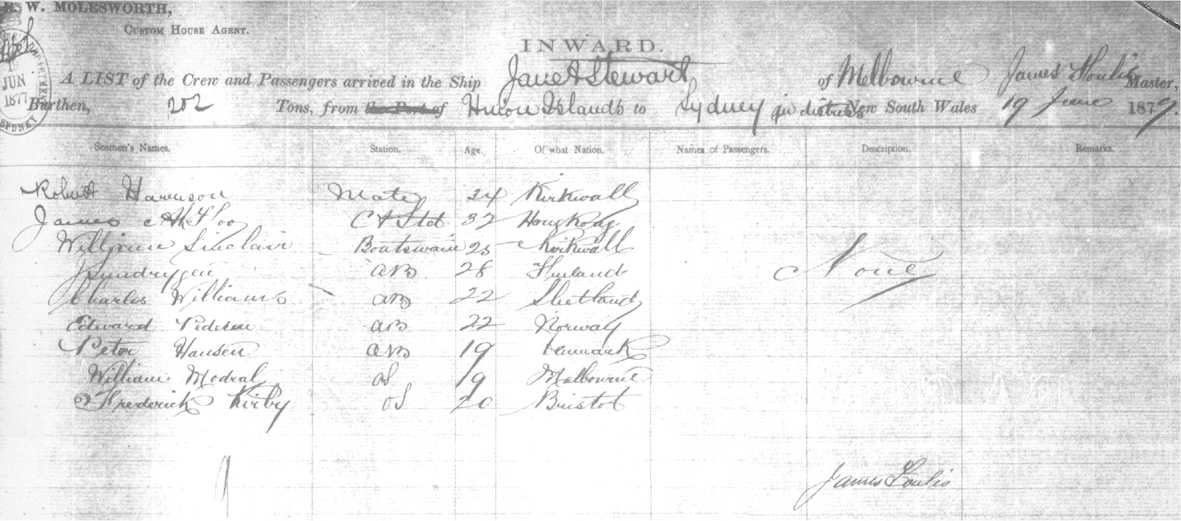 W. MOLESWORTH,
CUSTOM HOUSE AGENT.
INWARD.
JUN
1877
SYDNEY
A LIST of the Crew and Passengers arrived in the Ship Janet Stewart of Melbourne James Master,
Burthen, 202 Tons, from the Port of Huon Islands to Sydney New South Wales 19 June 1877.
Seamen's Names. Station. Age. Of what Nation. Names of Passengers. Description. Remarks.
Robert Mate 24 Kirkwall
James Ah Foo C & Std 32 Hong Kong
William Sinclair Boatswain 25 Kirkwall
AB 28 Finland
Charles Williams AB 22 Shetland
None
Edward AB 22 Norway
Peter Hansen AB 19 Denmark
William OS 19 Melbourne
Frederick Kirby OS 20 Bristol
9
James